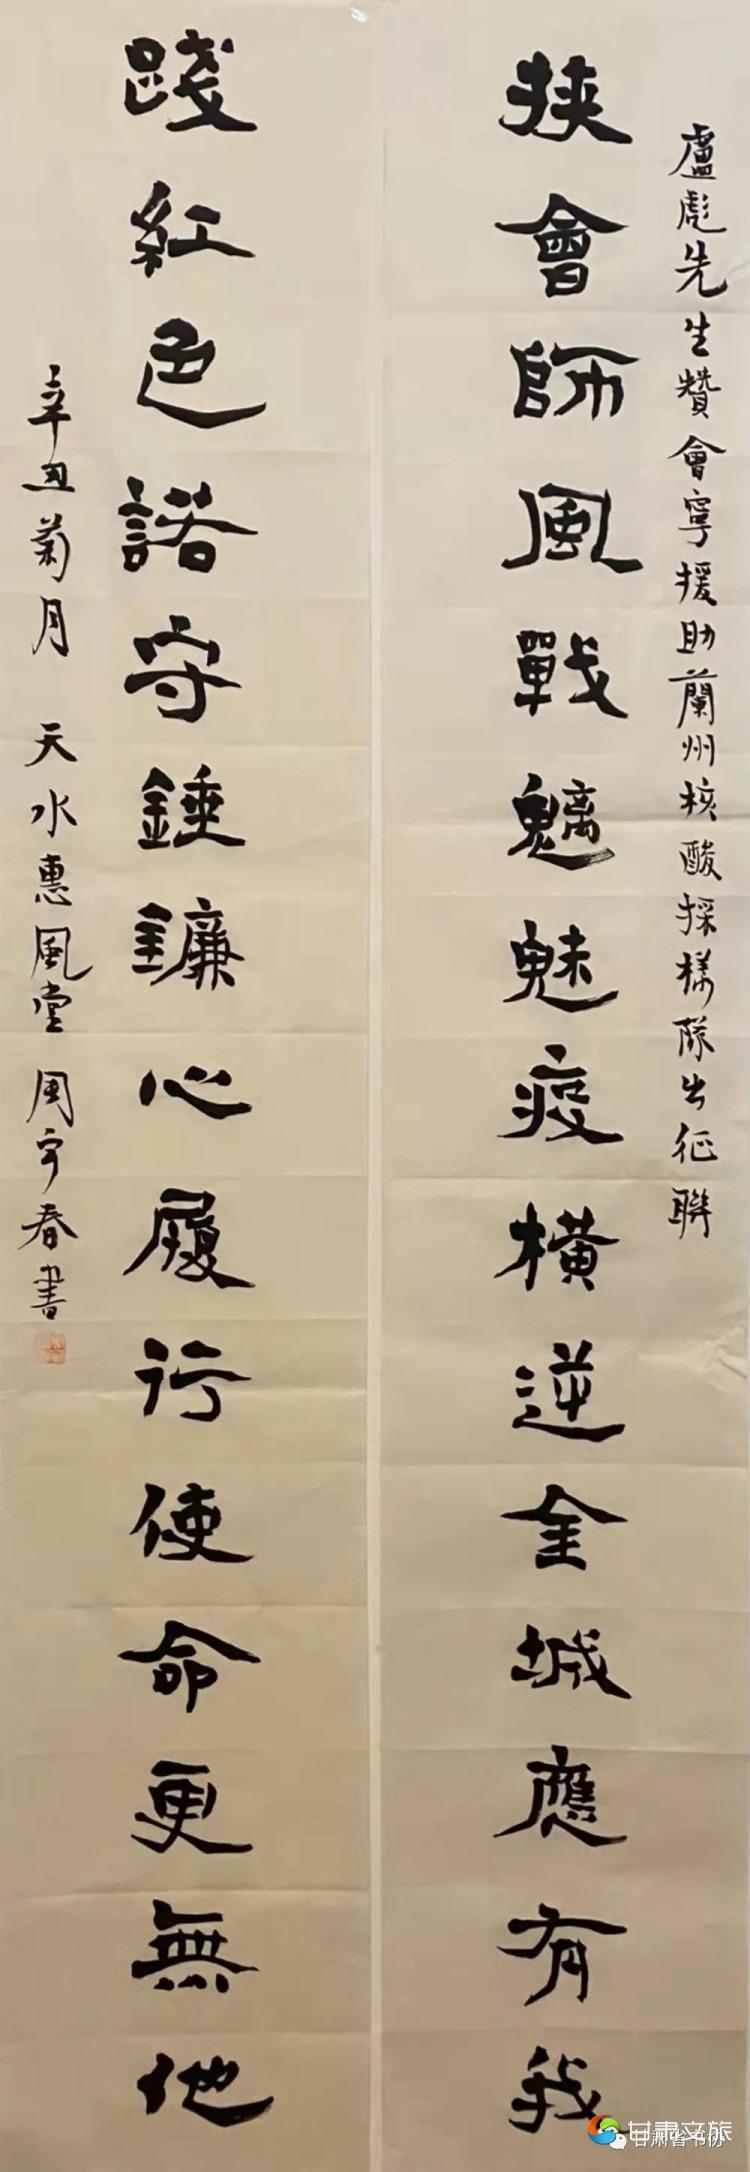 盧彪先生贊會寧援助蘭州核酸採樣隊出征聯
挾會師風戰魑魅疫橫逆金城應有我
踐紅色諾守錘鐮心履行使命更無他
辛丑菊月 天水惠風堂周宇春書
甘肃文旅
甘肃省书协